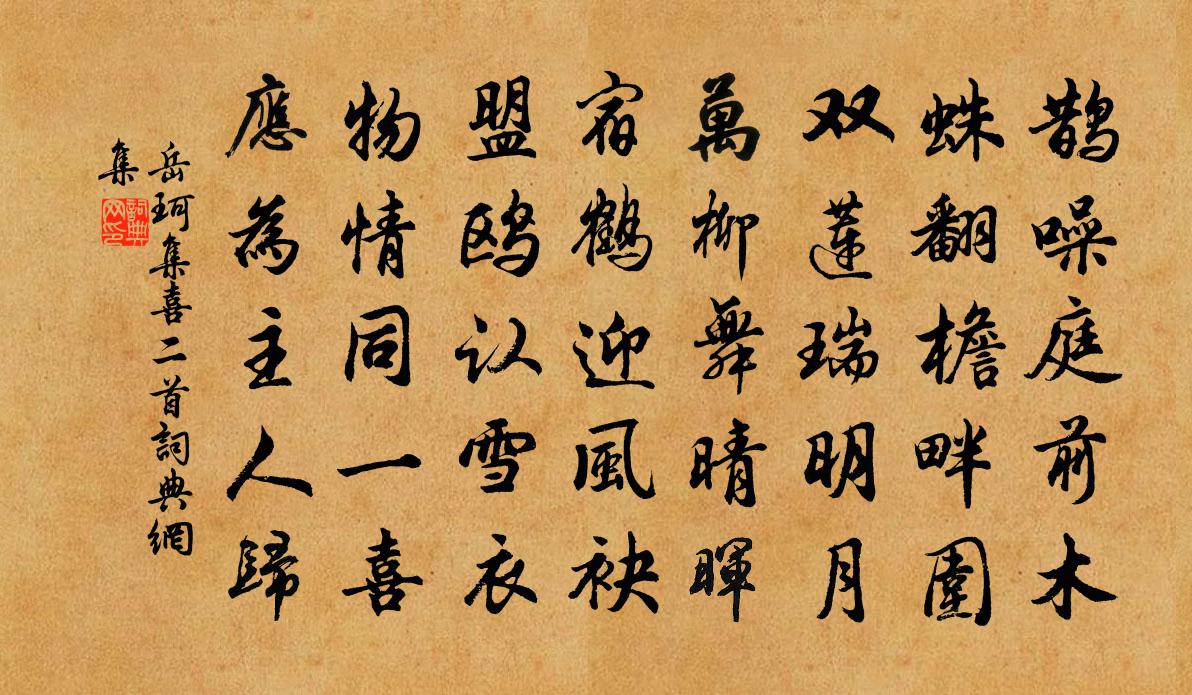 鹊噪庭前木
蛛翻檐畔圍
双蓮瑞明月
萬柳舞晴暉
宿鶴迎風袂
盟鸥认雪衣
物情同一喜
應為主人歸
岳珂集喜二首詞典網
集
詞典網印